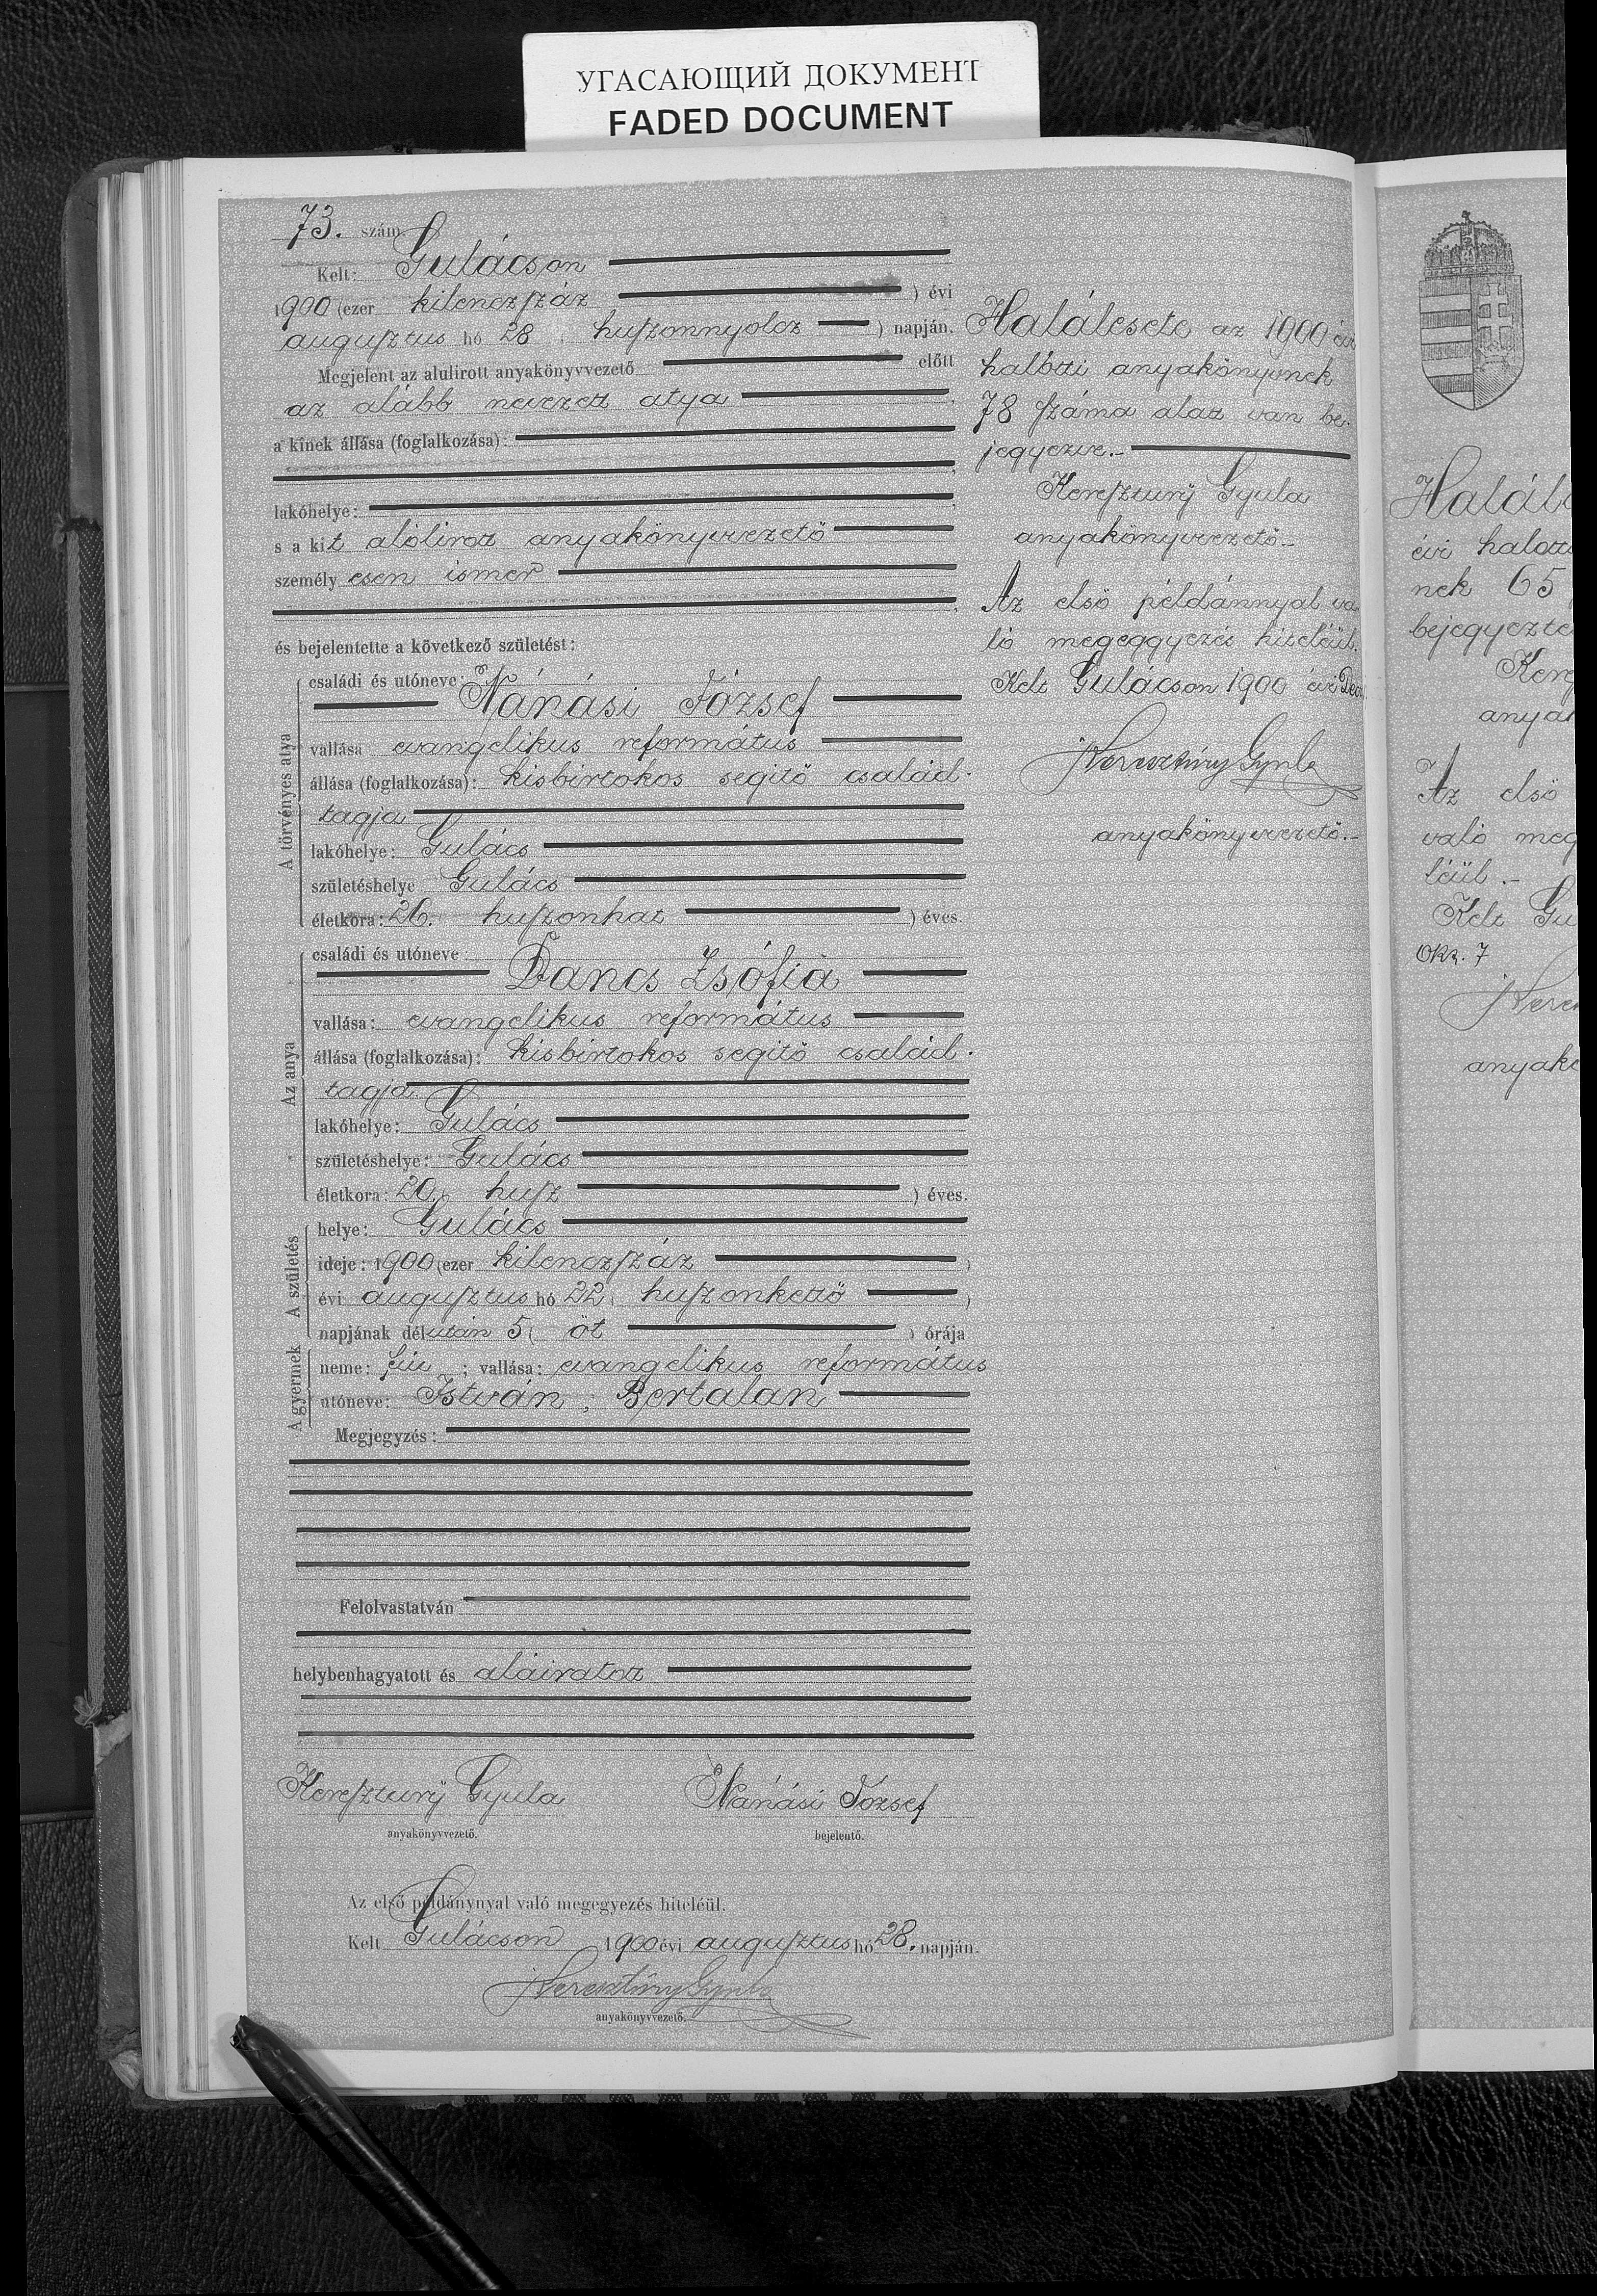 УГАСАЮЩИЙ ДОКУМЕНТ
FADED DOCUMENT
73. szám.
Kelt: Gulácson
1900 (ezer kilenczszáz ) évi
augusztus hó 28 ( huszonnyolcz ) napján.
Megjelent az alulirott anyakönyvvezető előtt
az alább nevezett atya
a kinek állása (foglalkozása):
lakóhelye:
s a kit alólirott anyakönyvvezető
személyesen ismer
és bejelentette a következő születést:
A törvényes atya
családi és utóneve:
Nánási József
vallása evangelikus református
állása (foglalkozása): kisbirtokos segitő család-
tagja
lakóhelye: Gulács
születéshelye Gulács
életkora: 26. huszonhat ) éves.
Az anya
családi és utóneve:
Dancs Zsófia
vallása: evangelikus református
állása (foglalkozása): kisbirtokos segitő család-
tagja
lakóhelye: Gulács
születéshelye: Gulács
életkora: 20. husz ) éves.
A születés
helye: Gulács
ideje: 1900 (ezer kilenczszáz )
évi augusztus hó 22 ( huszonkettő )
napjának délután 5 ( öt ) órája
A gyermek
neme: fiu ; vallása: evangelikus református
utóneve: István, Bertalan
Megjegyzés:
Felolvastatván
helybenhagyatott és aláiratott
Keresztury Gyula Nánási József
anyakönyvvezető. bejelentő.
Az első példánynyal való megegyezés hiteléül.
Kelt Gulácson 1900 évi augusztus hó 28. napján.
Keresztúry Gyula
anyakönyvvezető.
Halálesete az 1900 évi
halotti anyakönyvnek
78 száma alatt van be-
jegyezve.
Keresztury Gyula
anyakönyvvezető.
Az első példánnyal va-
ló megeggyezés hiteléül.
Kelt Gulácson 1900 évi Dec
Keresztúry Gyula
anyakönyvvezető.
Halál
évi halotti
nek 65
bejegyezte
Kere
anya
Az első
való meg
léül.
Kelt Gu
Okt. 7
Keres
anyakö